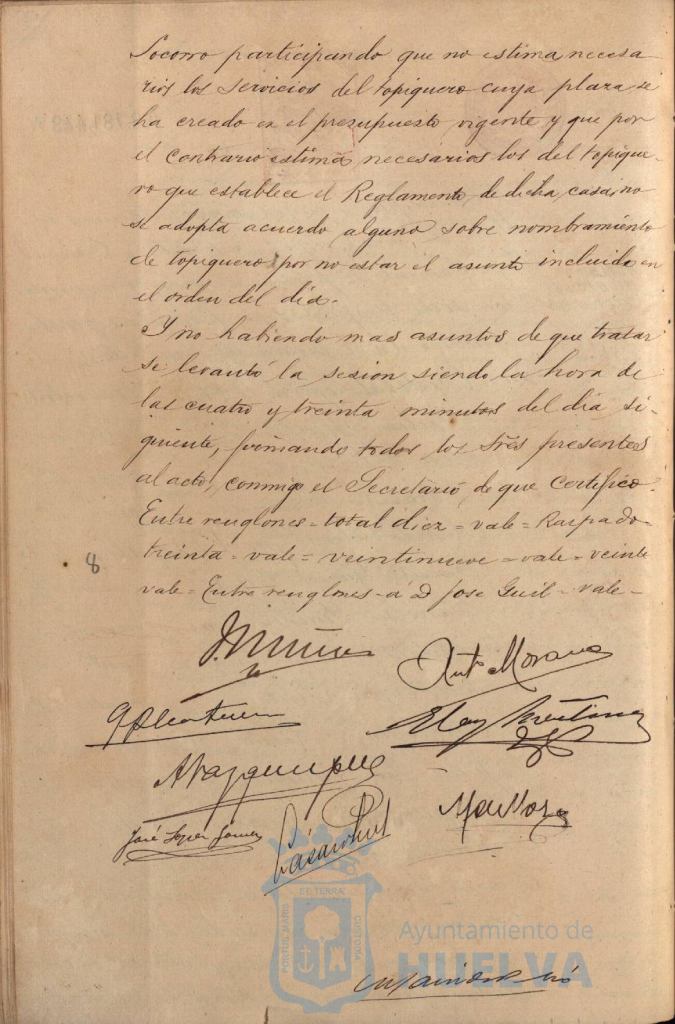 Socorro participando que no estima necesa-
rios los servicios del topiquero cuya plaza se
ha creado en el presupuesto vigente y que por
el contrario estima necesarios los del topique-
ro que establece el Reglamento de dicha casa, no
se adopta acuerdo alguno sobre nombramiento
de topiquero por no estar el asunto incluido en
el orden del dia.
Y no habiendo mas asuntos de que tratar
se levantó la sesion siendo la hora de
las cuatro y treinta minutos del dia si-
guiente, firmando todos los Srēs presentes
al acto, conmigo el Secretario, de que certifico.
Entre renglones = total diez = vale = Raspado -
treinta = vale = veintinueve = vale = veinte
8
vale = Entre renglones - á D José Guil - vale -
Antº Morano
José Lopez Gomez
PORTUS MARIS ET TERRÆ CUSTODIA
Ayuntamiento de
HUELVA